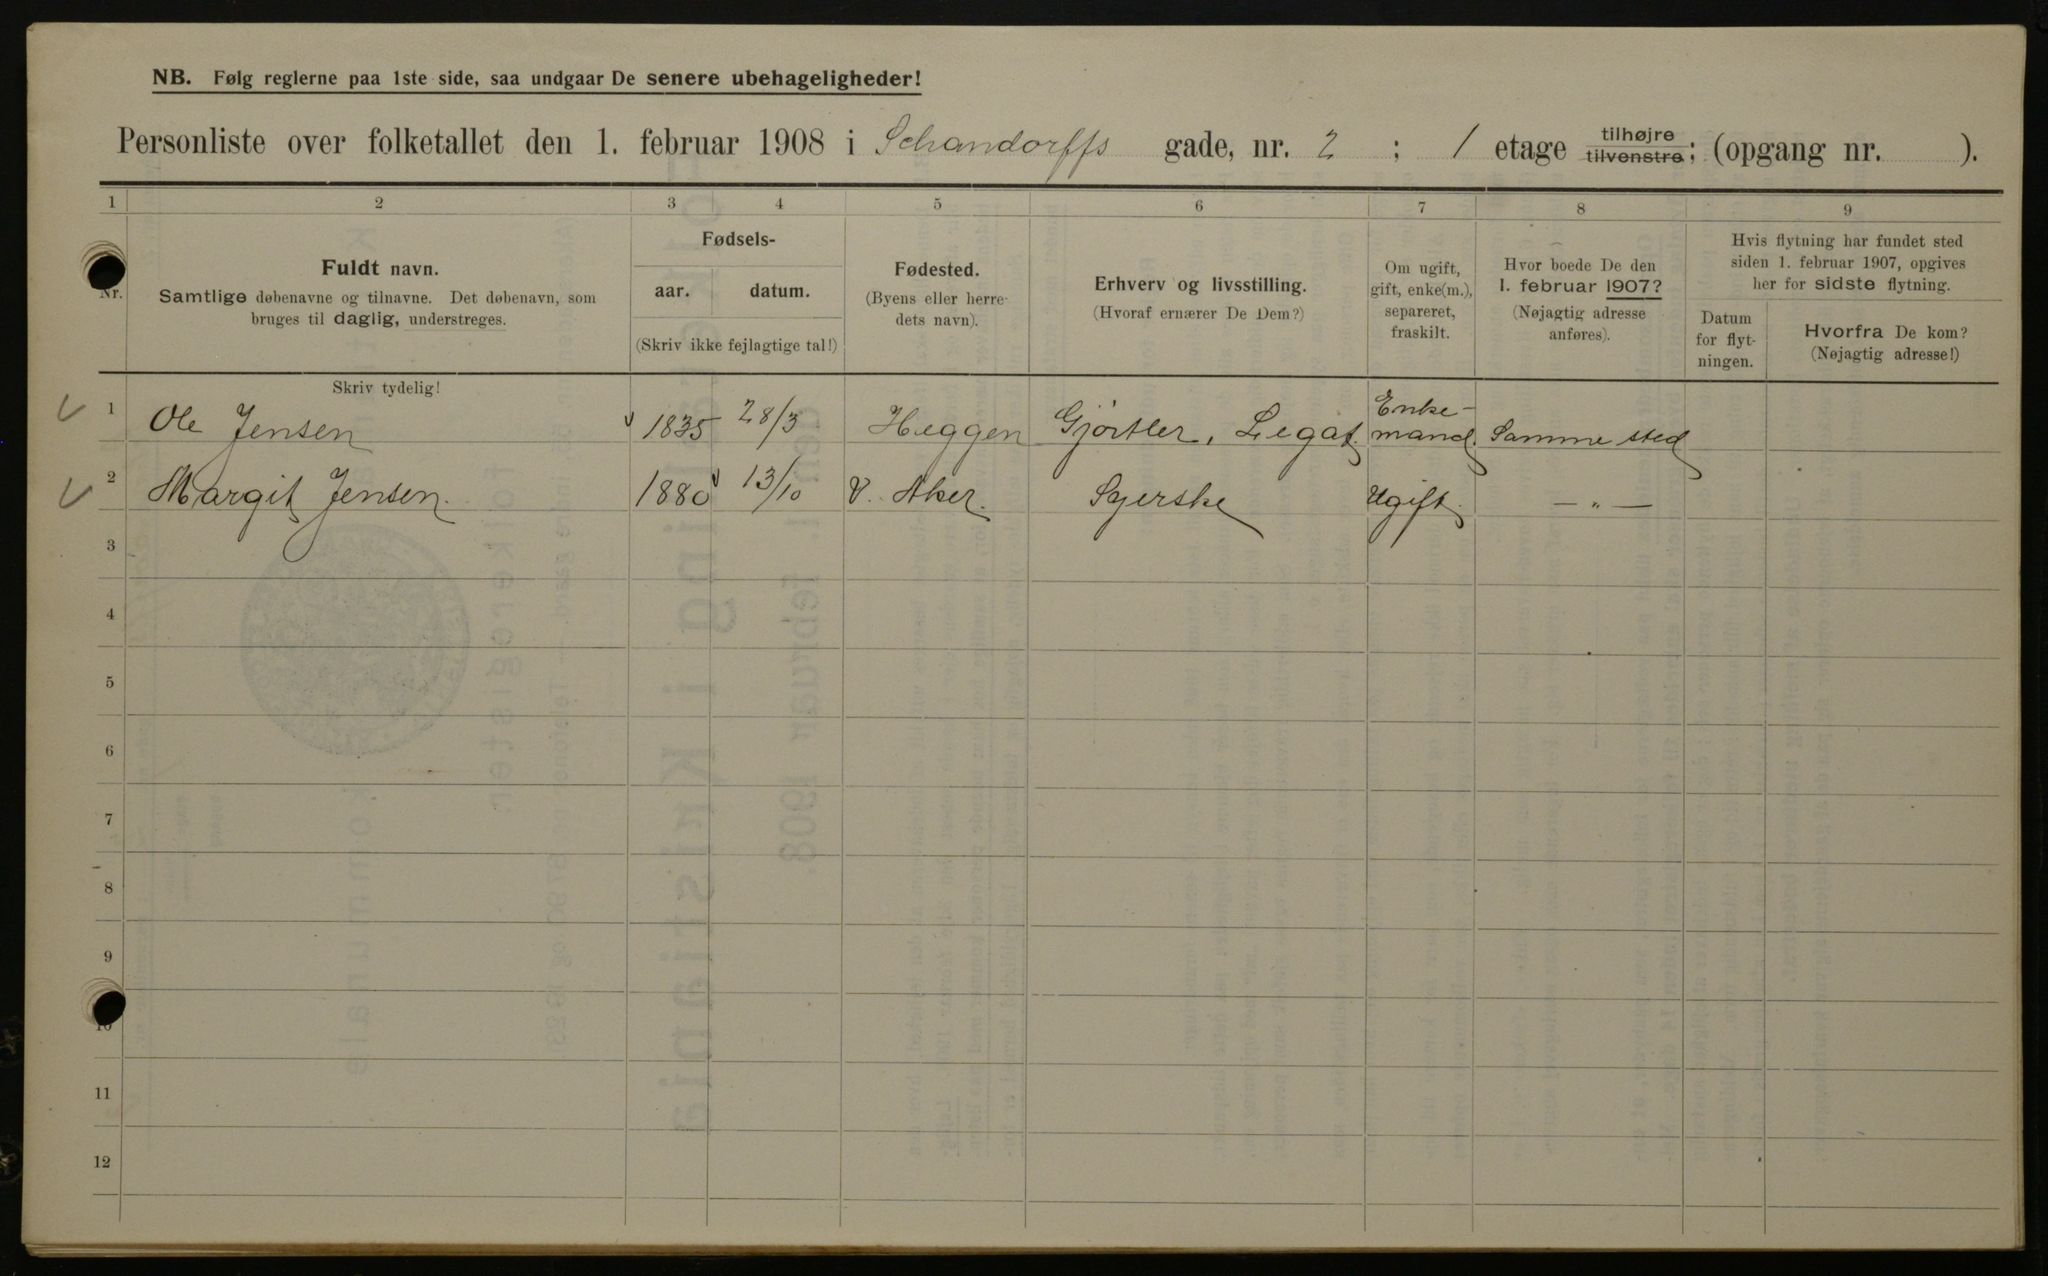 NB. Følg reglerne paa 1ste side, saa undgaar De senere ubehageligheder!
Personliste over folketallet den 1. februar 1908 i Schandorffs gade, nr. 2 ; 1 etage tilhøjre tilvenstre; (opgang nr. ).
1 2 3 4 5 6 7 8 9
Nr.
Fuldt navn.
Samtlige døbenavne og tilnavne. Det døbenavn, som
bruges til daglig, understreges.
Skriv tydelig!
Fødsels-
aar. datum.
(Skriv ikke fejlagtige tal!)
Fødested.
(Byens eller herre-
dets navn).
Erhverv og livsstilling.
(Hvoraf ernærer De Dem?)
Om ugift,
gift, enke(m.),
separeret,
fraskilt.
Hvor boede De den
1. februar 1907?
(Nøjagtig adresse
anføres).
Hvis flytning har fundet sted
siden 1. februar 1907, opgives
her for sidste flytning.
Datum
for flyt-
ningen.
Hvorfra De kom?
(Nøjagtig adresse!)
1 Ole Jensen 1835 28/3 Heggen Gjörtler, Legat Enke-
mand. Samme sted
2 Margit Jensen. 1880 13/10 V. Aker. Syerske Ugift. — „ —
3
4
5
6
7
8
9
10
11
12